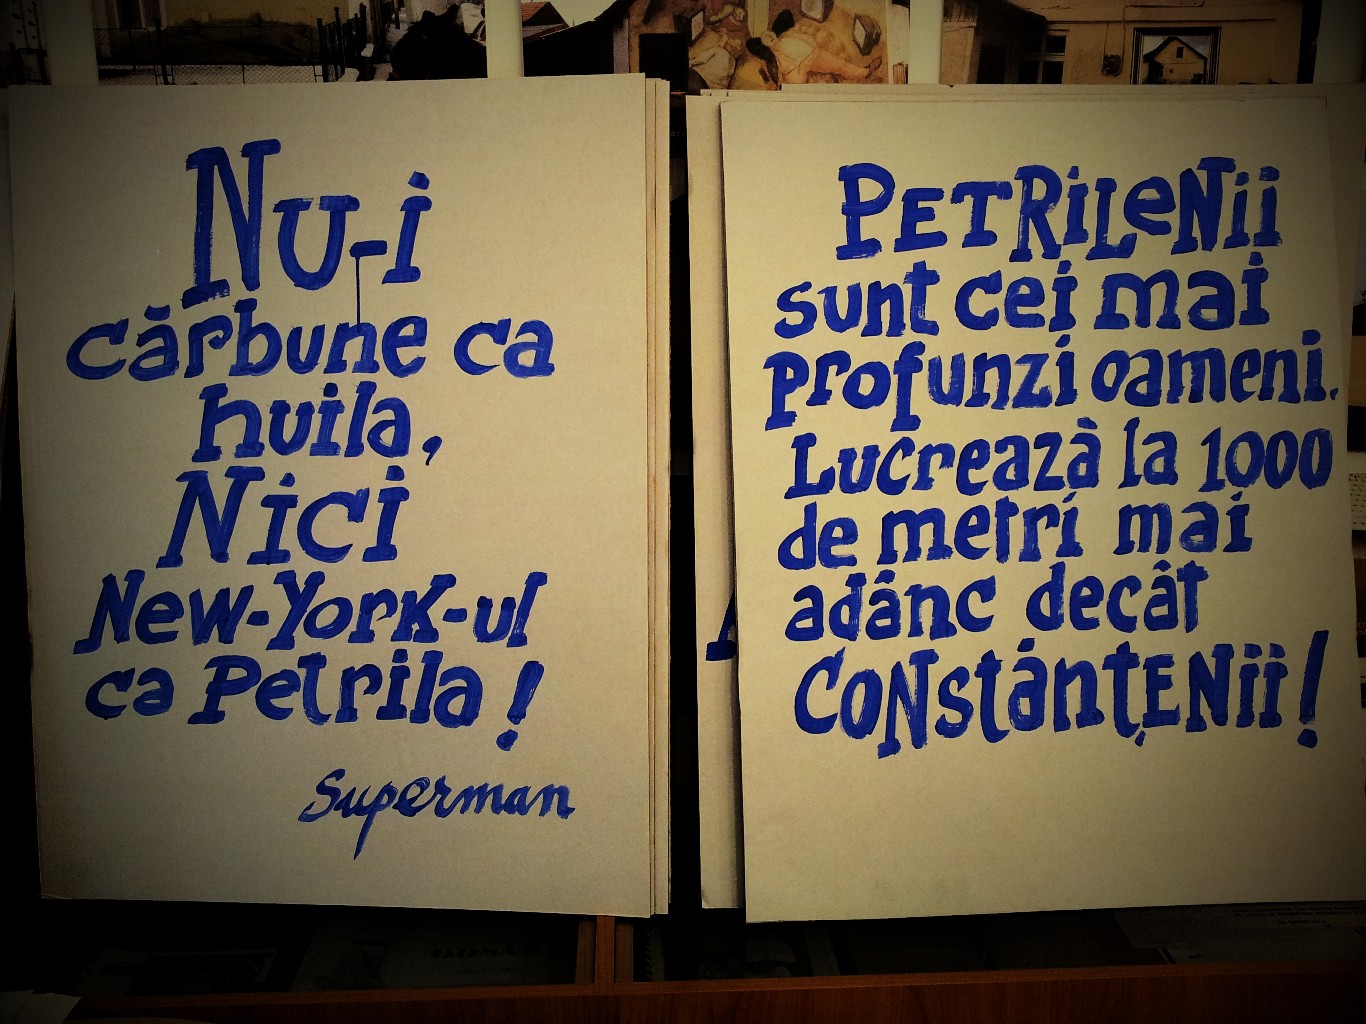 Nu-i
cărbune ca
huila,
Nici
New-York-ul
ca Petrila!
Superman
PETRiLeNii
sunt cei mai
profunzi oameni.
Lucrează la 1000
de metri mai
adânc decât
CoNstânțENii!